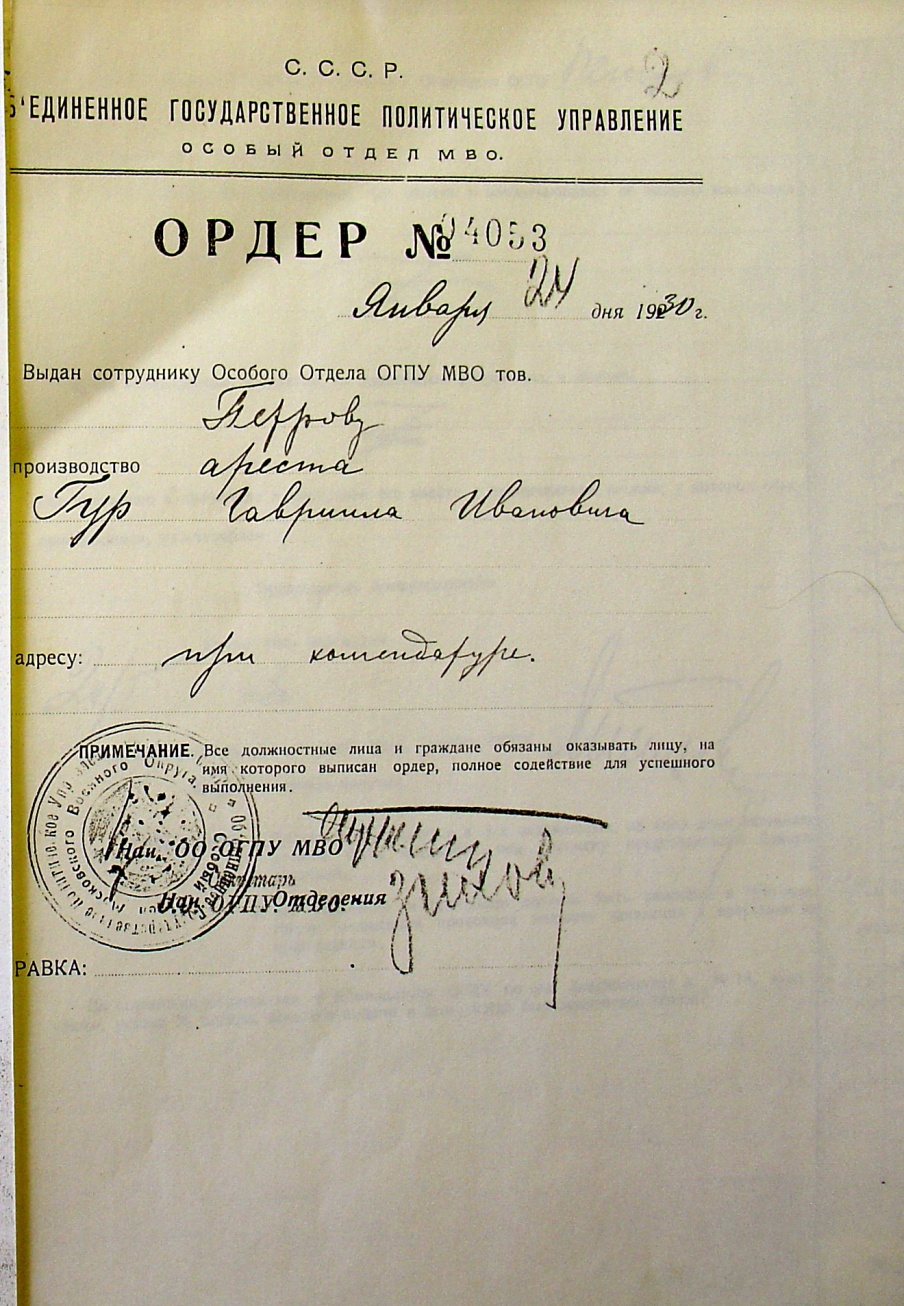 2
С. С. С. Р.
Б'ЕДИНЕННОЕ ГОСУДАРСТВЕННОЕ ПОЛИТИЧЕСКОЕ УПРАВЛЕНИЕ
ОСОБЫЙ ОТДЕЛ МВО.
ОРДЕР № 04053
Января 24 дня 1930 г.
Выдан сотруднику Особого Отдела ОГПУ МВО тов.
Петрову
производство ареста
Гур Гавриила Ивановича
адресу: при комендатуре.
ПРИМЕЧАНИЕ. Все должностные лица и граждане обязаны оказывать лицу, на
имя которого выписан ордер, полное содействие для успешного
выполнения.
Нач. ОО ОГПУ МВО
Секретарь
Нач. Отделения
ОГПУ. МВО.
РАВКА: